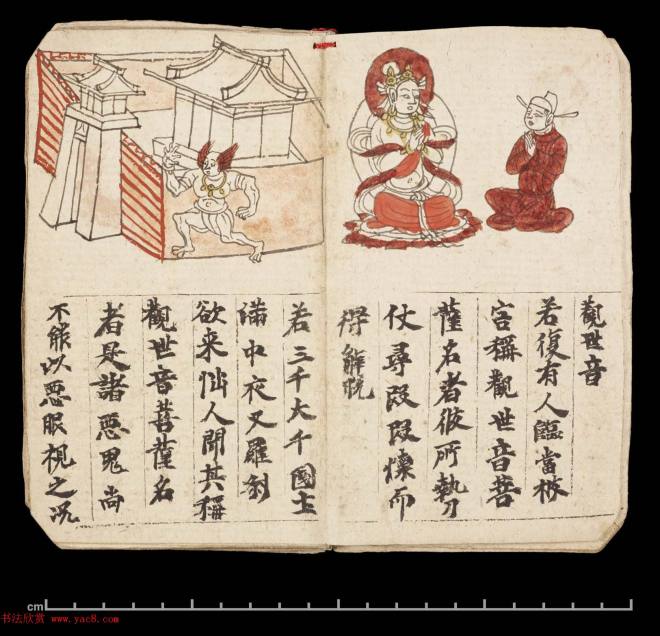 觀世音
若復有人臨當被
害稱觀世音菩
薩名者彼所執刀
仗尋段段懷而
得解脱
若三千大千國土
滿中夜叉羅刹
欲来惱人聞其稱
觀世音菩薩名
者是諸惡鬼尚
不能以惡眼視之況
cm
书法欣赏 www.yac8.com